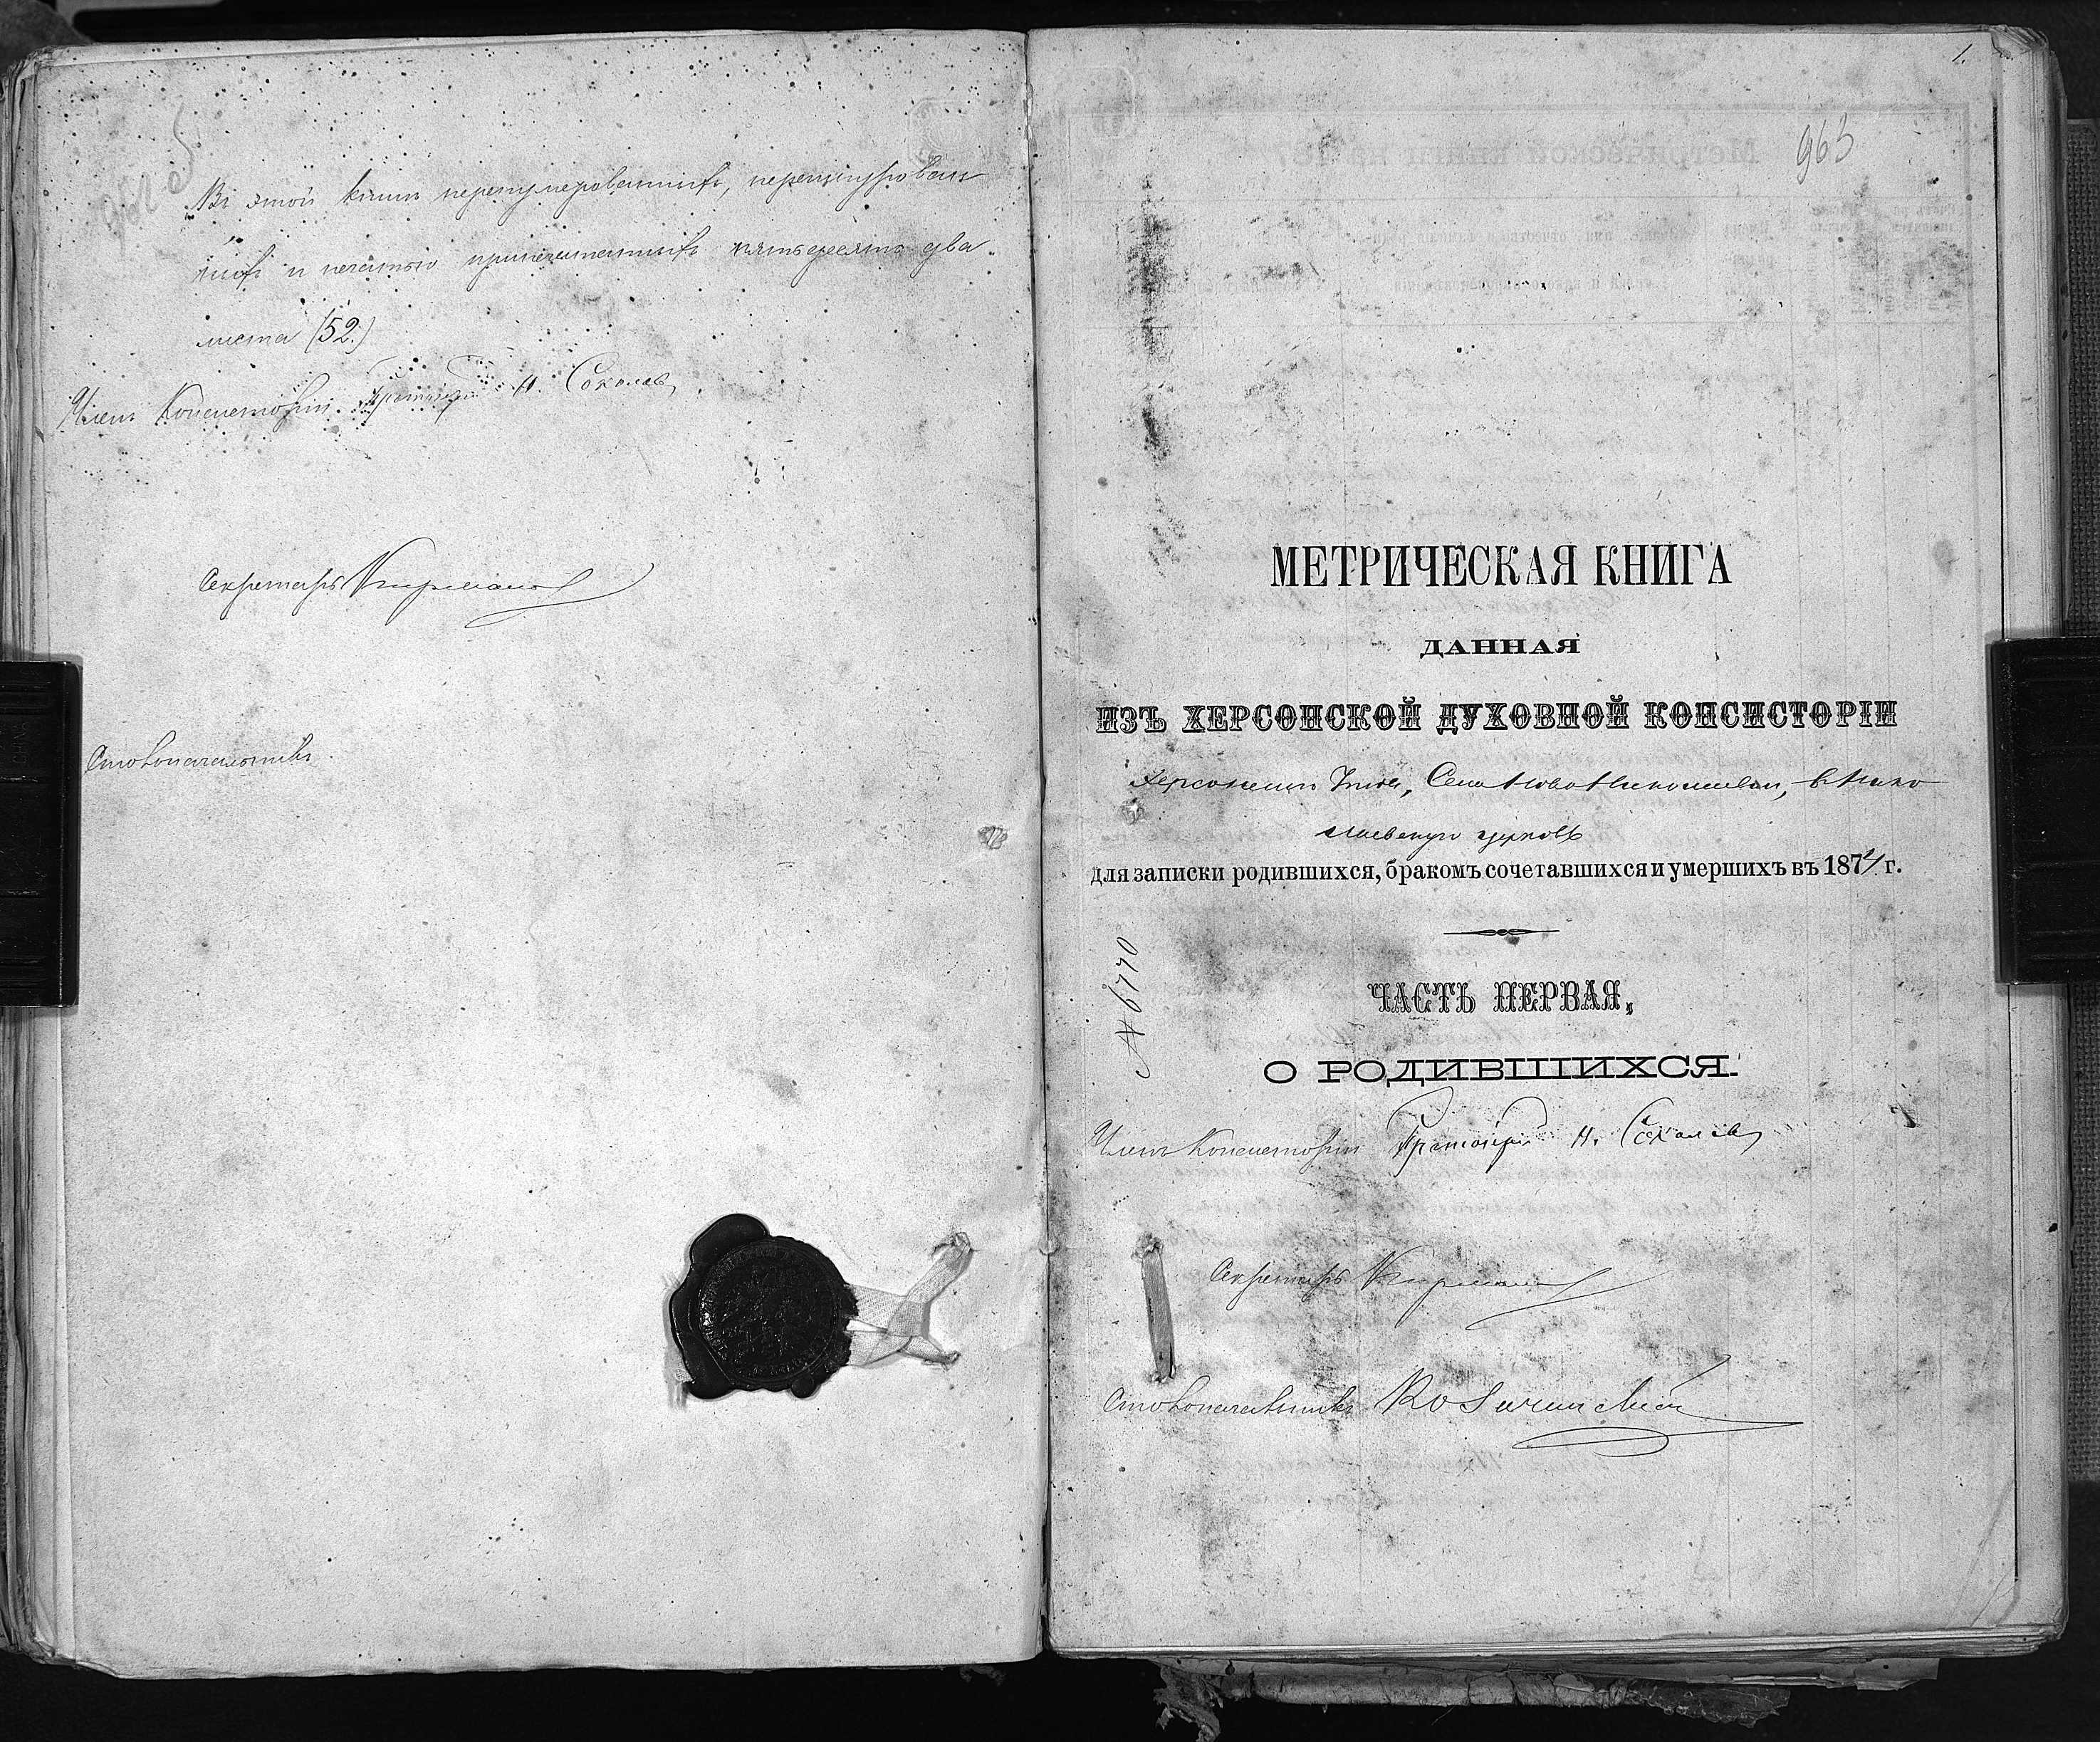 Въ этой книгѣ перенумерованныхъ, перешнурован
ныхъ и печатью припечатанныхъ пятьдесятъ два
листа (52.)
Членъ Консисторіи Протоіерей Н. Соколовъ
Секретарь
Столоначальникъ
1.
963
МЕТРИЧЕСКАЯ КНИГА
ДАННАЯ
ИЗЪ ХЕРСОНСКОЙ ДУХОВНОЙ КОНСИСТОРІИ
Херсонскаго уѣзда, Села Ново Николаевки, въ Нико
лаевскую церковь
для записки родившихся, бракомъ сочетавшихся и умершихъ въ 1874 г.
№ 6770
ЧАСТЬ ПЕРВАЯ,
О РОДИВШИХСЯ.
Членъ Консисторіи Протоіерей Н. Соколовъ
Секретарь
Столоначальникъ